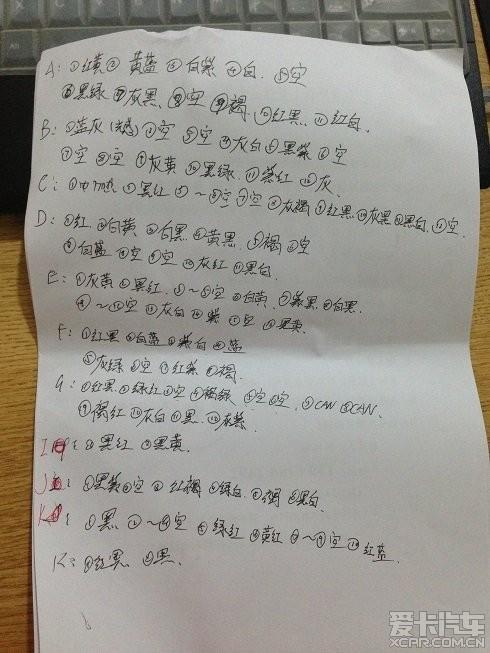 A: ①红黄② 黄蓝 ③白紫 ④白. ⑤空
⑥黑绿 ⑦灰黑 ⑧空 ⑨褐 ⑩红黑 ⑪红白.
B: ①蓝灰 ②空 ③空 ④灰白 ⑤黑紫 ⑥空
⑦空 ⑧空 ⑨灰黄 ⑩黑绿 ⑪紫红 ⑫灰.
C: ②黑红 ③~ 空 空 灰褐 红黑 灰黑 黑白 空.
D: ①红 ②白黄 ③白黑 ④黄黑 ⑤褐 ⑥空
⑦白蓝 ⑧空 ⑨空 ⑩灰红 ⑪黑白.
E: ①灰黄 ②黑红 ③~⑤空 ⑥白黄 ⑦紫黑 ⑧白黑
⑨~ 空 灰白 紫 空 黑黄.
F: ①红黑 ②白蓝 ③紫白 ④蓝
⑤灰绿 ⑥空 ⑦红紫 ⑧褐.
G: ①红黑 ②绿红 ③空 ④褐绿 ⑤空 ⑥空 ⑦CAN ⑧CAN.
⑨ 红 ⑩灰白 ⑪黑 ⑫灰紫
I: ①黑红 ②黑黄.
J: ①黑紫 ②空 ③红褐 ④绿白 ⑤褐 ⑥黑白.
K: ①黑 ②~ 空 绿红 黄红 ~ 空 红蓝.
K: ①红黑 ②黑.
爱卡汽车
XCAR.COM.CN